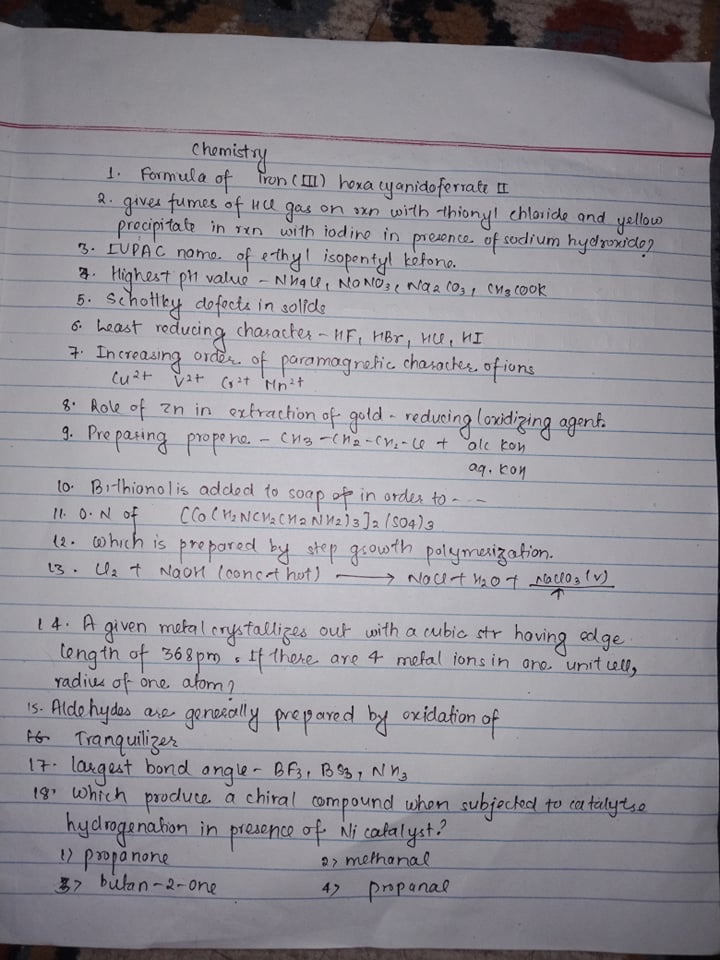 Chemistry
1. Formula of Iron (III) hexa cyanidoferrate II
2. gives fumes of HCl gas on rxn with thionyl chloride and yellow
precipitate in rxn with iodine in presence of sodium hydroxide?
3. IUPAC name of ethyl isopentyl ketone.
4. Highest pH value - NH4Cl, NaNO3, Na2CO3, CH3COOK
5. Schottky defects in solids
6. Least reducing character - HF, HBr, HCl, HI
7. Increasing order of paramagnetic character of ions
Cu2+ V2+ Cr2+ Mn2+
8. Role of Zn in extraction of gold - reducing/oxidizing agent.
9. Preparing propene - CH3-CH2-CH2-Cl + alc KOH
aq. KOH
10. Bithionol is added to soap in order to ---
11. O.N of [Co(H2NCH2CH2NH2)3]2(SO4)3
12. Which is prepared by step growth polymerization.
13. Cl2 + NaOH (conc + hot) → NaCl + H2O + NaClO3 (V)
↑
14. A given metal crystallizes out with a cubic str having edge
length of 368pm. If there are 4 metal ions in one unit cell,
radius of one atom?
15. Aldehydes are generally prepared by oxidation of
16 Tranquilizer
17. largest bond angle - BF3, NH3
18. Which produce a chiral compound when subjected to catalytse
hydrogenation in presence of Ni catalyst?
1) propanone 2) methanal
3) butan-2-one 4) propanal